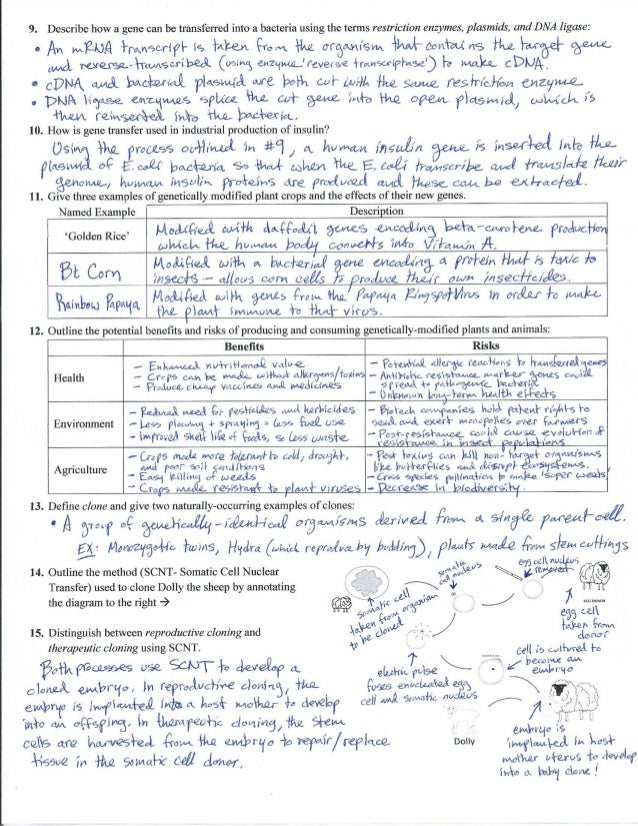 9. Describe how a gene can be transferred into a bacteria using the terms restriction enzymes, plasmids, and DNA ligase:
• An mRNA transcript is taken from the organism that contains the target gene
and reverse-transcribed (using enzyme 'reverse transcriptase') to make cDNA.
• cDNA and bacterial plasmid are both cut with the same restriction enzyme
• DNA ligase enzymes splice the cut gene into the open plasmid, which is
then reinserted into the bacteria.
10. How is gene transfer used in industrial production of insulin?
Using the process outlined in #9, a human insulin gene is inserted into the
plasmid of E.coli bacteria so that when the E. coli transcribe and translate their
genome, human insulin proteins are produced and these can be extracted.
11. Give three examples of genetically modified plant crops and the effects of their new genes.
Named Example Description
'Golden Rice' Modified with daffodil genes encoding beta-carotene production
which the human body converts into Vitamin A.
Bt Corn Modified with a bacterial gene encoding a protein that is toxic to
insects – allows corn cells to produce their own insecticides.
Rainbow Papaya Modified with genes from the 'Papaya Ringspot Virus in order to make
the plant immune to that virus.
12. Outline the potential benefits and risks of producing and consuming genetically-modified plants and animals:
Benefits Risks
Health
– Enhanced nutritional value
– Crops can be made without allergens/toxins
– Produce cheap vaccines and medicines
– Potential allergic reactions to transferred genes
– Antibiotic resistance marker genes could
spread to pathogenic bacteria
– Unknown long-term health effects
Environment
– Reduced need for pesticides and herbicides
– Less plowing + spraying = less fuel use
– Improved shelf life of foods, so less waste
– Biotech companies hold patent rights to
seed and exert monopolies over farmers
– Pest-resistance could cause evolution of
resistance in insect populations
Agriculture
– Crops made more tolerant to cold, drought,
and poor soil conditions
– Easy killing of weeds
– Crops made resistant to plant viruses
– Pest toxins can kill non-target organisms
like butterflies and disrupt ecosystems.
– Cross species pollination to make 'super weeds'
– Decrease in biodiversity.
13. Define clone and give two naturally-occurring examples of clones:
• A group of genetically-identical organisms derived from a single parent cell.
EX: Monozygotic twins, Hydra (which reproduce by budding), plants made from stem cuttings
14. Outline the method (SCNT- Somatic Cell Nuclear
Transfer) used to clone Dolly the sheep by annotating
the diagram to the right →
somatic cell
taken from organism
to be cloned
somatic
cell nucleus
egg cell nucleus
removed
EGG DONOR
egg cell
taken from
donor
cell is cultured to
become an
embryo
electric pulse
fuses enucleated egg
cell and somatic nucleus
Dolly
embryo is
implanted in host
mother uterus to develop
into a baby clone!
15. Distinguish between reproductive cloning and
therapeutic cloning using SCNT.
Both processes use SCNT to develop a
cloned embryo. In reproductive cloning, the
embryo is implanted into a host mother to develop
into an offspring. In therapeutic cloning, the stem
cells are harvested from the embryo to repair/replace
tissue in the somatic cell donor.